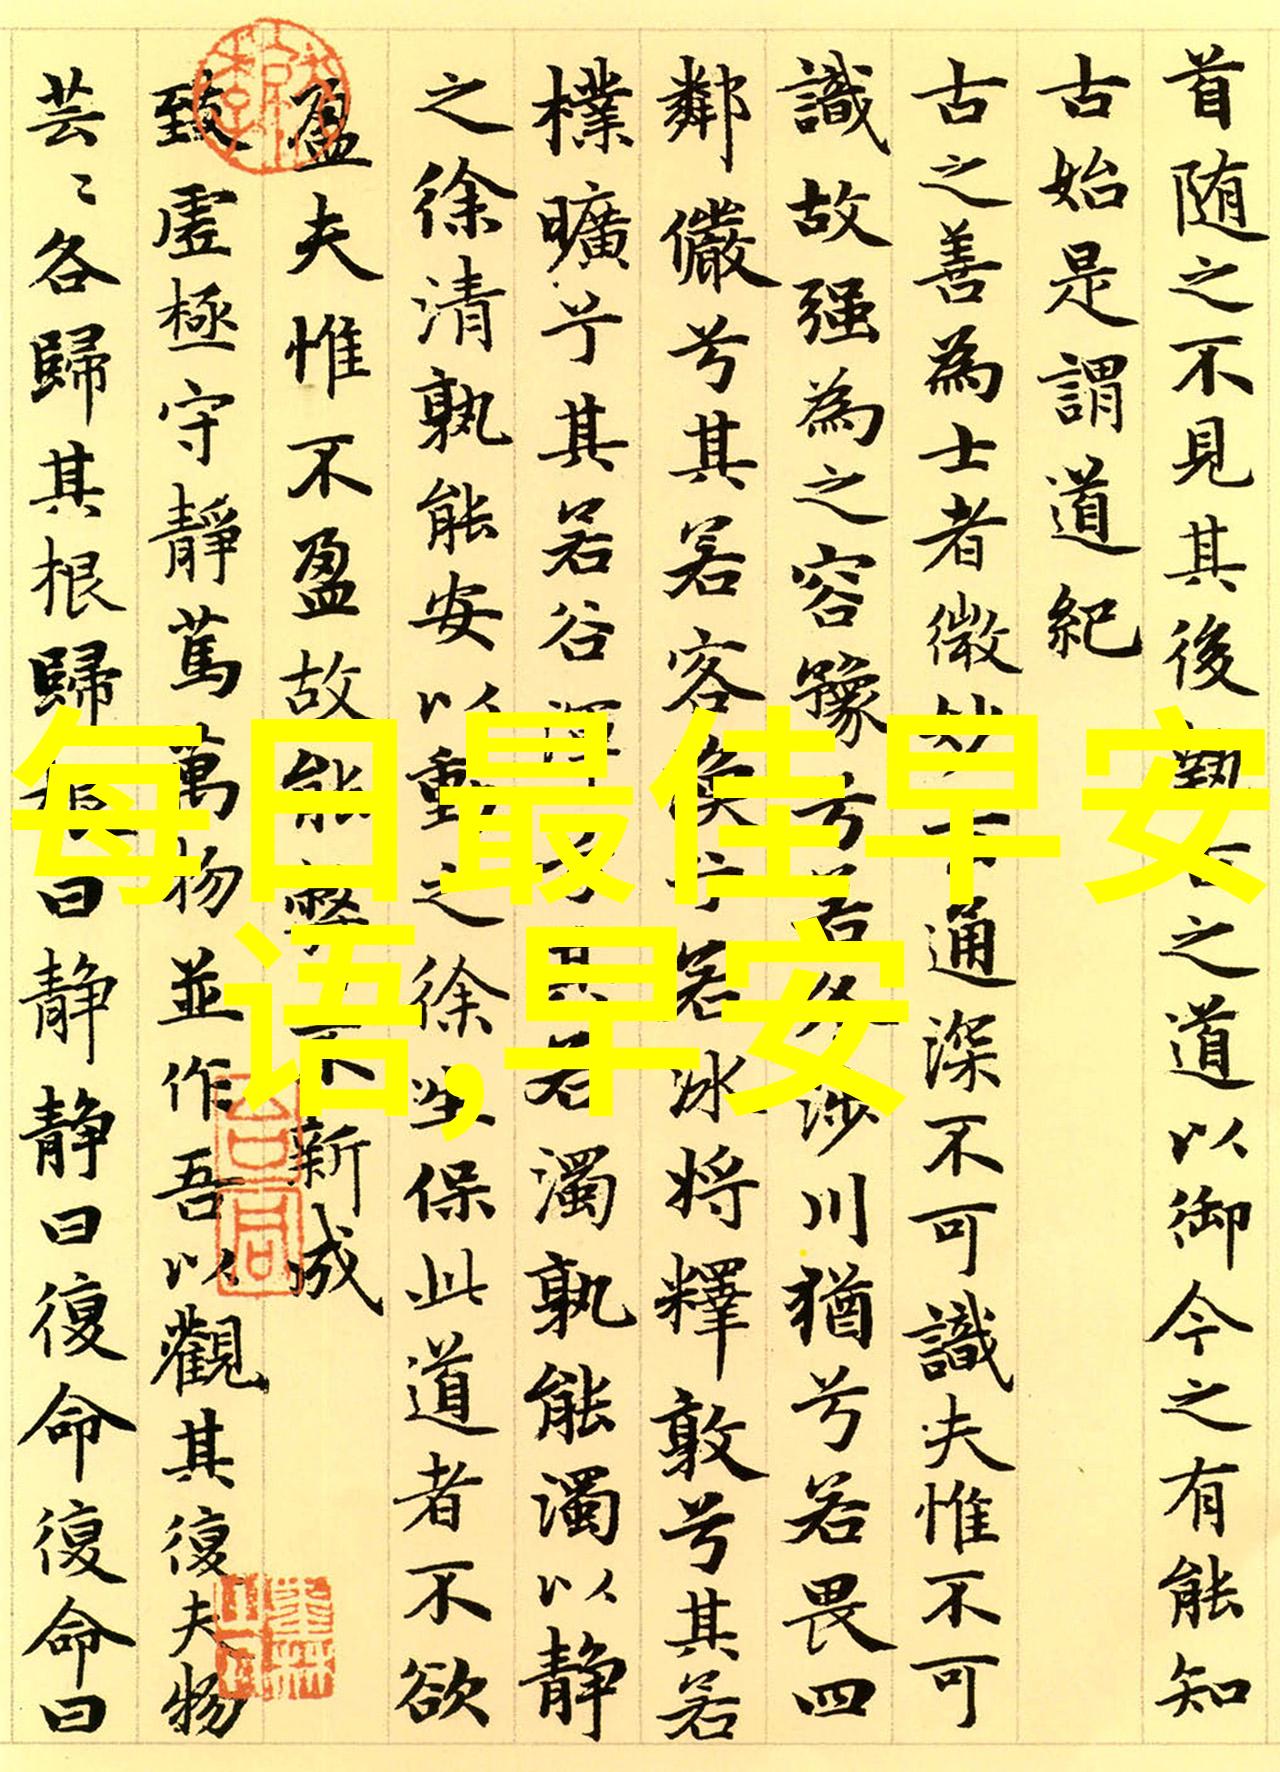 首随之不见其後執古之道以御今之有能知
古始是謂道紀
古之善為士者微妙不通深不可識夫惟不可
識故强為之容豫兮若冬涉川猶兮若畏四
鄰儼兮其若客渙兮若冰將釋敦兮其若
樸曠兮其若谷渾兮其若濁孰能濁以静
之徐清孰能安以動之徐生保此道者不欲
盈夫惟不盈故能弊不新成
致虛極守靜篤萬物並作吾以觀其復夫物
芸〻各歸其根歸根曰静静曰復命復命曰
每日最佳早安
语,早安